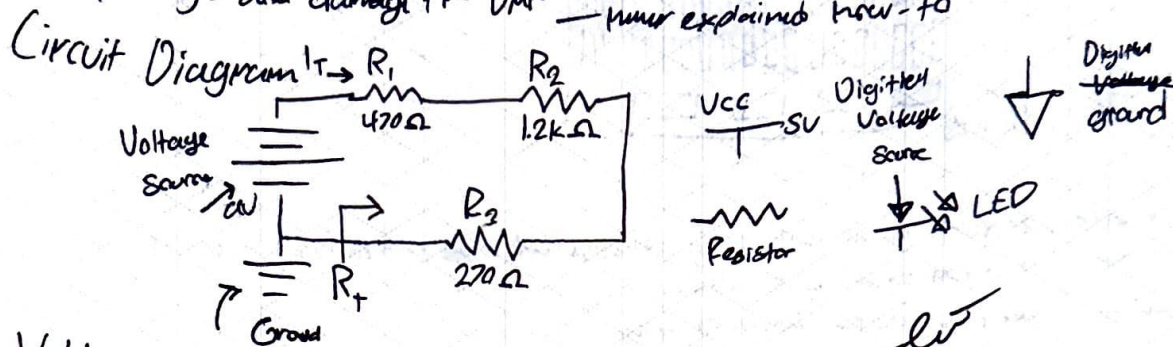 never explained how-to
Circuit Diagram
I_T →
R1
470Ω
R2
1.2kΩ
Voltage
Source
R3
270Ω
R_T
Ground
VCC
5V
Digital
Voltage
Source
Digital
Voltage
ground
Resistor
LED